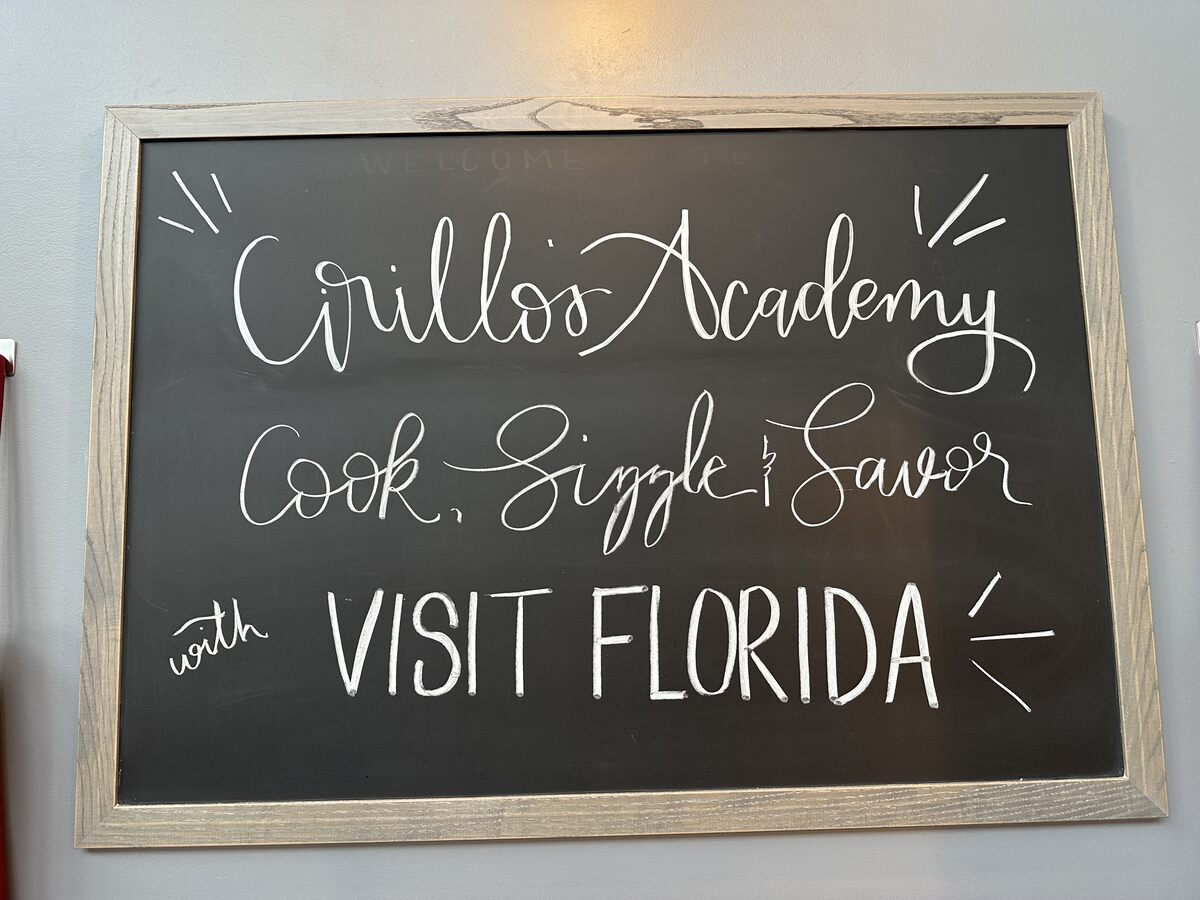 WELCOME TO
Cirillo's Academy
Cook, Sizzle & Savor
with VISIT FLORIDA